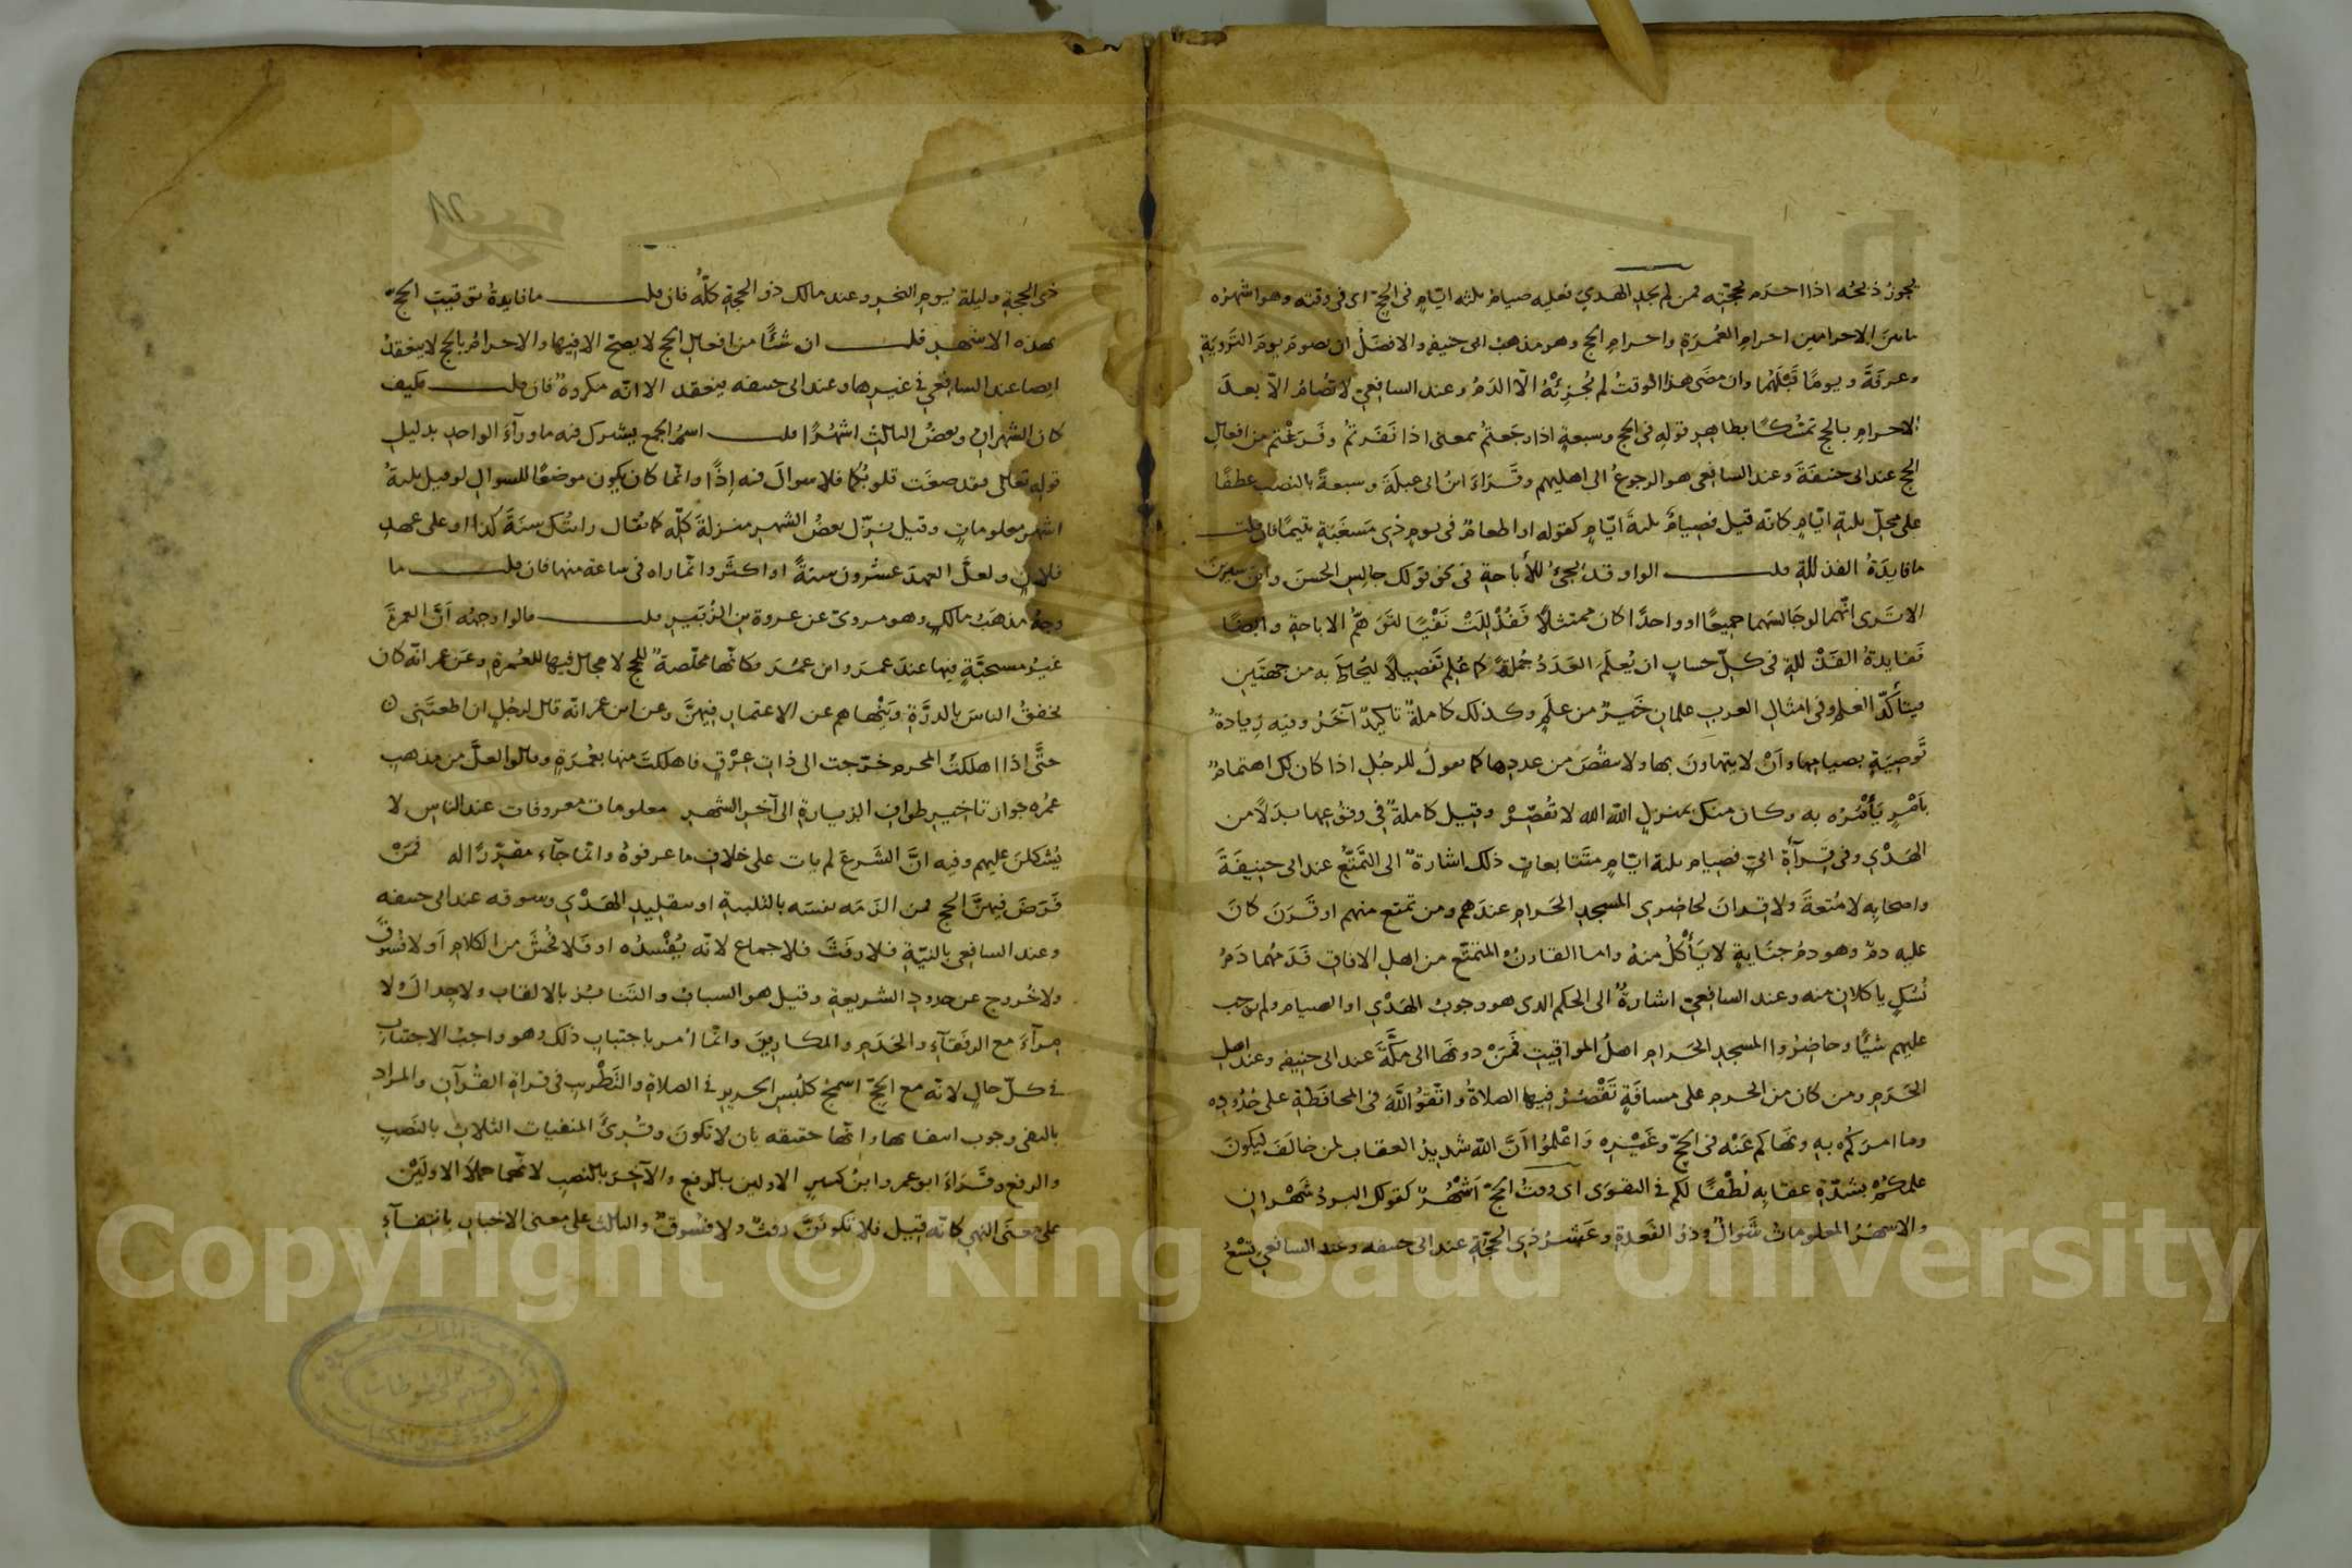 يجوز ذبحه اذا احرم بحجته فمن لم يجد الهدي فعليه صيام ثلثه ايام في الحج اى في وقته وهو اشهره
ما بين الاحرامين احرام العمرة واحرام الحج وهو مذهب ابى حنيفه والافضل ان يصوم يوم التروية
وعرفة ويوما قبلهما وان مضى هذا الوقت لم يجزئه الا الدم وعند الشافعي لا تصام الا بعد
الاحرام بالحج تمسكا بظاهر قوله في الحج وسبعة اذا رجعتم بمعنى اذا نفرتم وفرغتم من افعال
الحج عند ابى حنيفة وعند الشافعى هو الرجوع الى اهليهم وقرأ ابن ابى عبلة وسبعة بالنصب عطفا
على محل ثلثة ايام كانه قيل فصيام ثلثة ايام كقوله او اطعام في يوم ذي مسغبة يتيما فان قلت
ما فايدة الفذلكة قلت الواو قد تجئ للأباحة في نحو قولك جالس الحسن وابن سيرين
الا ترى انهما لو جالسهما جميعا او واحدا كان ممتثلا ففذلكت نفيا لتوهم الاباحة وايضا
ففايدة الفذلكة في كل حساب ان يعلم العدد جملة كما علم تفصيلا ليحاط به من جهتين
فيتأكد العلم وفى امثال العرب علمان خير من علم وكذلك كاملة تاكيد آخر وفيه زيادة
توصية بصيامها وان لا يتهاون بها ولا ينقص من عددها كما تقول للرجل اذا كان لك اهتمام
بأمر يأمره به وكان منك بمنزل الله الله لا تقصر وقيل كاملة في وقوعها بدلا من
الهدي وفي قرآة ابي فصيام ثلثة ايام متتابعات ذلك اشارة الى التمتع عند ابى حنيفة
واصحابه لا متعة ولا قران لحاضري المسجد الحرام عندهم ومن تمتع منهم او قرن كان
عليه دم وهو دم جناية لا يأكل منه واما القارن والمتمتع من اهل الافاق فدمهما دم
نسك ياكلان منه وعند الشافعي اشارة الى الحكم الذى هو وجوب الهدي او الصيام ولم يوجب
عليهم شيئا وحاضروا المسجد الحرام اهل المواقيت فمن دونها الى مكة عند ابى حنيفه وعند اهل
الحرم ومن كان من الحرم على مسافة تقصر فيها الصلاة واتقوا الله في المحافظة على حدوده
وما امركم به ونهاكم عنه في الحج وغيره واعلموا ان الله شديد العقاب لمن خالف ليكون
علمكم بشدة عقابه لطفا لكم في التقوى اى وقت الحج اشهر كقولك البرد شهران
والاشهر المعلومات شوال وذو القعدة وعشر ذي الحجة عند ابى حنيفه وعند الشافعي تسع
ذى الحجة وليلة يوم النحر وعند مالك ذو الحجة كله فان قلت ما فايدة توقيت الحج
بهذه الاشهر قلت ان شئا من افعال الحج لا يصح الا فيها والاحرام بالحج لا ينعقد
ايضا عند الشافعي في غيرها وعند ابى حنيفه ينعقد الا انه مكروه فان قلت فكيف
كان الشهران وبعض الثالث اشهرا قلت اسم الجمع يشترك فيه ما ورآء الواحد بدليل
قوله تعالى فقد صغت قلوبكما فلا سوال فيه اذا وانما كان يكون موضعا للسوال لو قيل ثلثة
اشهر معلومات وقيل نزل بعض الشهر منزلة كله كما يقال رايتك سنة كذا او على عهد
فلان ولعل العهد عشرون سنة او اكثر وانما راه في ساعة منها فان قلت ما
وجه مذهب مالك وهو مروي عن عروة بن الزبير قلت قالوا وجهه ان العمرة
غير مستحبة فيها عند عمر وابن عمر فكانها مخلصة للحج لا مجال فيها للعمرة وعن عمر انه كان
يخفق الناس بالدرة وينهاهم عن الاعتمار فيهن وعن ابن عمر انه قال لرجل ان اطعتنى
حتى اذا اهللت المحرم خرجت الى ذات عرق فاهللت منها بعمرة وقالوا لعل من مذهب
عروه جواز تاخير طواف الزيارة الى آخر الشهر معلومات معروفات عند الناس لا
يشكلن عليهم وفيه ان الشرع لم يات على خلاف ما عرفوه وانما جآء مقررا له فمن
فرض فيهن الحج فمن الزمه نفسه بالتلبية او بتقليد الهدي وسوقه عند ابى حنيفه
وعند الشافعى بالنية فلا رفث فلا جماع لانه يفسده او فلا فحش من الكلام ولا فسوق
ولا خروج عن حدود الشريعة وقيل هو السباب والتنابز بالالقاب ولا جدال ولا
مرآء مع الرفقآء والخدم والمكارين وانما امر باجتناب ذلك وهو واجب الاجتناب
في كل حال لانه مع الحج اسمج كلبس الحرير في الصلاة والتطريب في قراة القرآن والمراد
بالنفى وجوب انتفائها وانها حقيقه بان لا تكون وقرئ المنفيات الثلاث بالنصب
والرفع وقرأ ابو عمرو وابن كثير الاولين بالرفع والآخر بالنصب لانهما حملا الاولين
على معنى النهي كانه قيل فلا تكونن رفث ولا فسوق والثالث على معنى الاخبار بانتفآء
Copyright © King Saud University